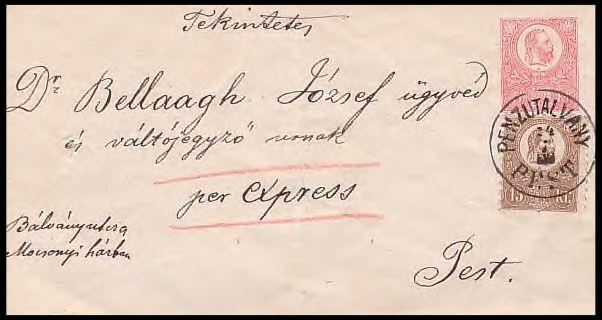 Tekintetes
Dr. Bellaagh József ügyvéd
és váltójegyző urnak
per express
Bálványutcza
Mocsonyi házban
Pest.
PENZUTALVANY
PEST
15 KR.